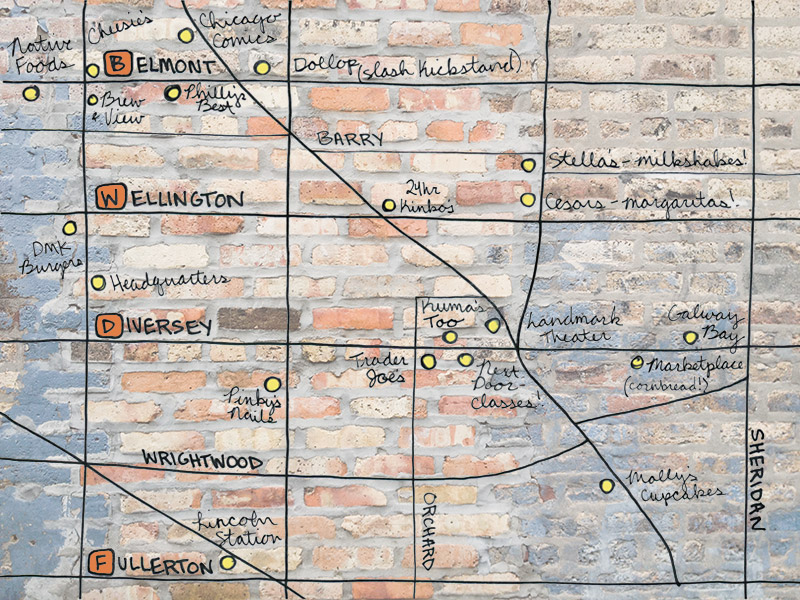 Cheesie's
Chicago
Comics
Native
Foods
BELMONT
Dollop (slash Kickstand)
Brew
& View
Philly's
Best
BARRY
Stella's - milkshakes!
WELLINGTON
24hr
Kinko's
Cesars - margaritas!
DMK
Burgers
Headquarters
Kuma's
Too
Landmark
Theater
Galway
Bay
DIVERSEY
Trader
Joe's
Next
Door -
Classes!
Marketplace
(cornbread!)
Pinky's
Nails
WRIGHTWOOD
SHERIDAN
Molly's
Cupcakes
ORCHARD
Lincoln
Station
FULLERTON